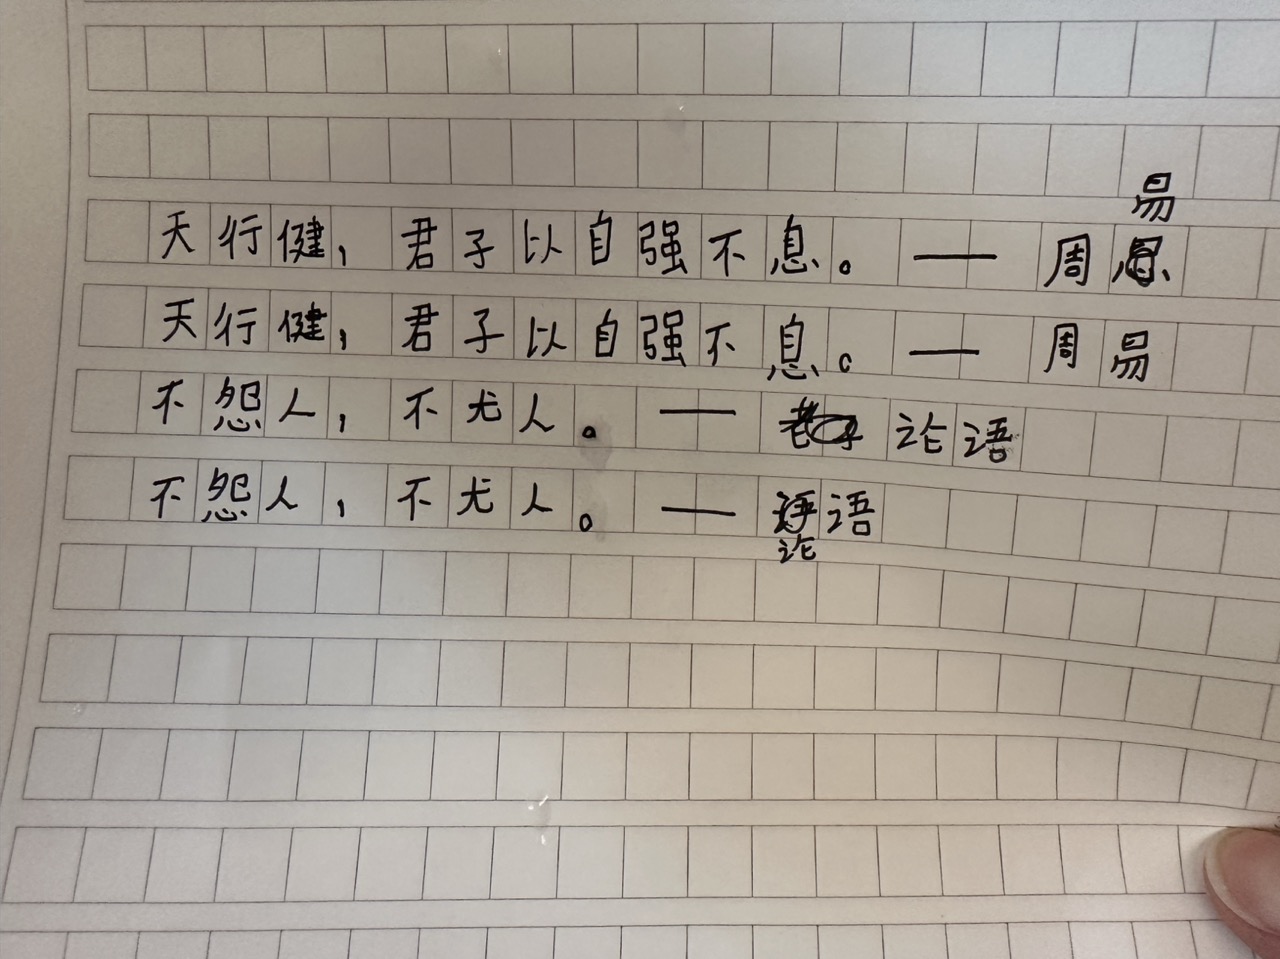 天行健，君子以自强不息。——周易
天行健，君子以自强不息。——周易
不怨人，不尤人。——论语
不怨人，不尤人。——论语